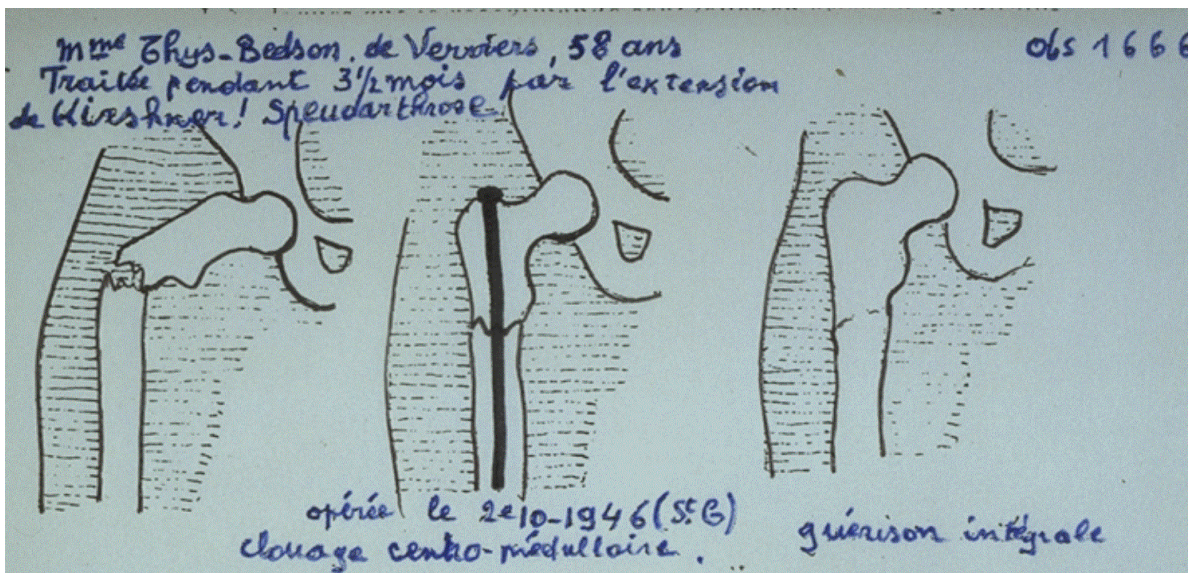 Mme Thys-Bedson. de Verviers, 58 ans
obs 1666
Traitée pendant 3 1/2 mois par l'extension
de Kirshner! Speudarthrose
opérée le 2e 10-1946 (St. G)
clouage centro-médullaire.
guérison intégrale